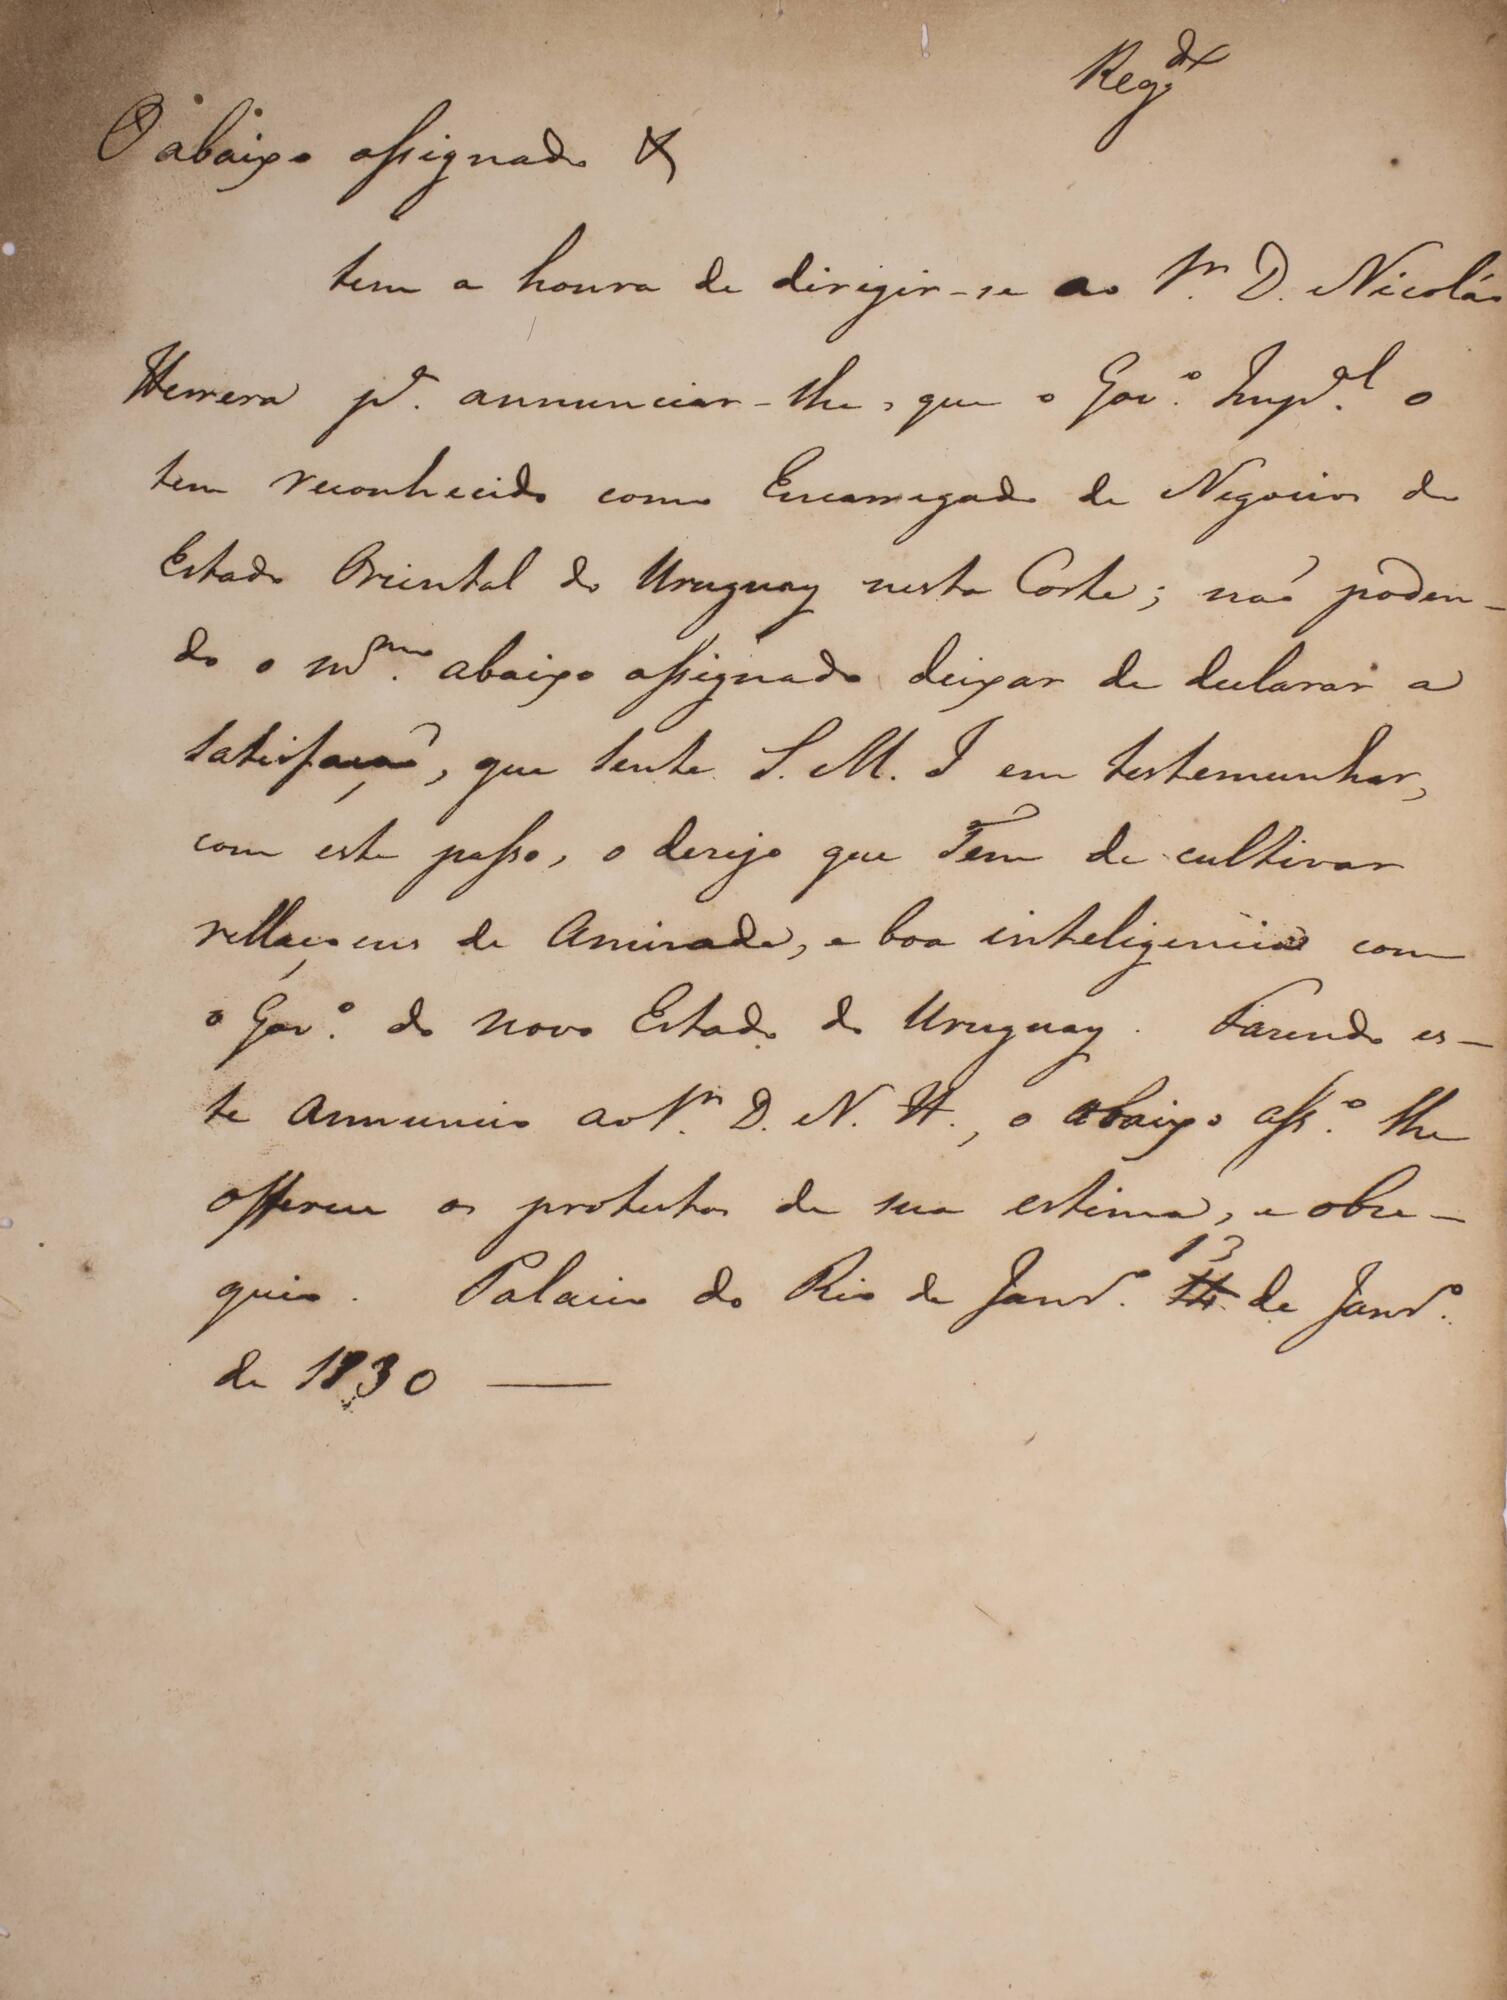 Reg.do
O abaixo assignado &
tem a honra de dirigir-se ao Sr. D. Nicolás
Herrera pa. annunciar-lhe, que o Gov.o Imp.al o
tem reconhecido como Encarregado de Negocios do
Estado Oriental do Uruguay nesta Corte; naõ poden-
do o m.mo abaixo assignado deixar de declarar a
satisfaçaõ, que sente S. M. I em testemunhar,
com este passo, o desejo que Tem de cultivar
rellaçoens de Amizade, e boa inteligencia com
o Gov.o do novo Estado do Uruguay. Fazendo es-
te Annuncio ao Sr. D. N. H., o abaixo ass.o lhe
offerece os protestos de sua estima, e obse-
quio. Palacio do Rio de Janr.o 13 de Janr.o
de 1830 —